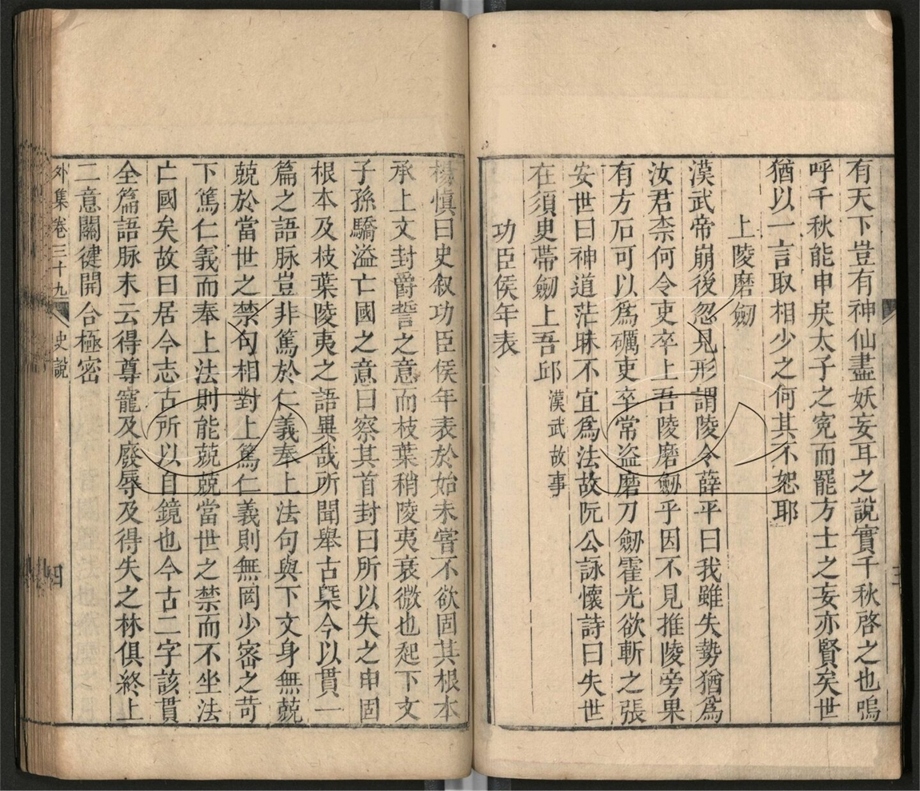 有天下豈有神仙盡妖妄耳之說實千秋啓之也嗚
呼千秋能申戾太子之寃而罷方士之妄亦賢矣世
猶以一言取相少之何其不恕耶
上陵磨劒
漢武帝崩後忽見形謂陵令薛平曰我雖失勢猶爲
汝君柰何令吏卒上吾陵磨劒乎因不見推陵旁果
有方石可以爲礪吏卒常盜磨刀劒霍光欲斬之張
安世曰神道茫昧不宜爲法故阮公詠懷詩曰失世
在須臾帶劒上吾邱 漢武故事
功臣侯年表
楊慎曰史叙功臣侯年表於始未嘗不欲固其根本
承上文封爵誓之意而枝葉稍陵夷衰微也起下文
子孫驕溢亡國之意曰察其首封曰所以失之申固
根本及枝葉陵夷之語異哉所聞舉古槩今以貫一
篇之語脉豈非篤於仁義奉上法句與下文身無兢
兢於當世之禁句相對上篤仁義則無罔少密之苛
下篤仁義而奉上法則能兢兢當世之禁而不坐法
亡國矣故曰居今志古所以自鏡也今古二字該貫
全篇語脉末云得尊寵及廢辱及得失之林俱終上
二意關鍵開合極密
外集卷三十九 史說 四